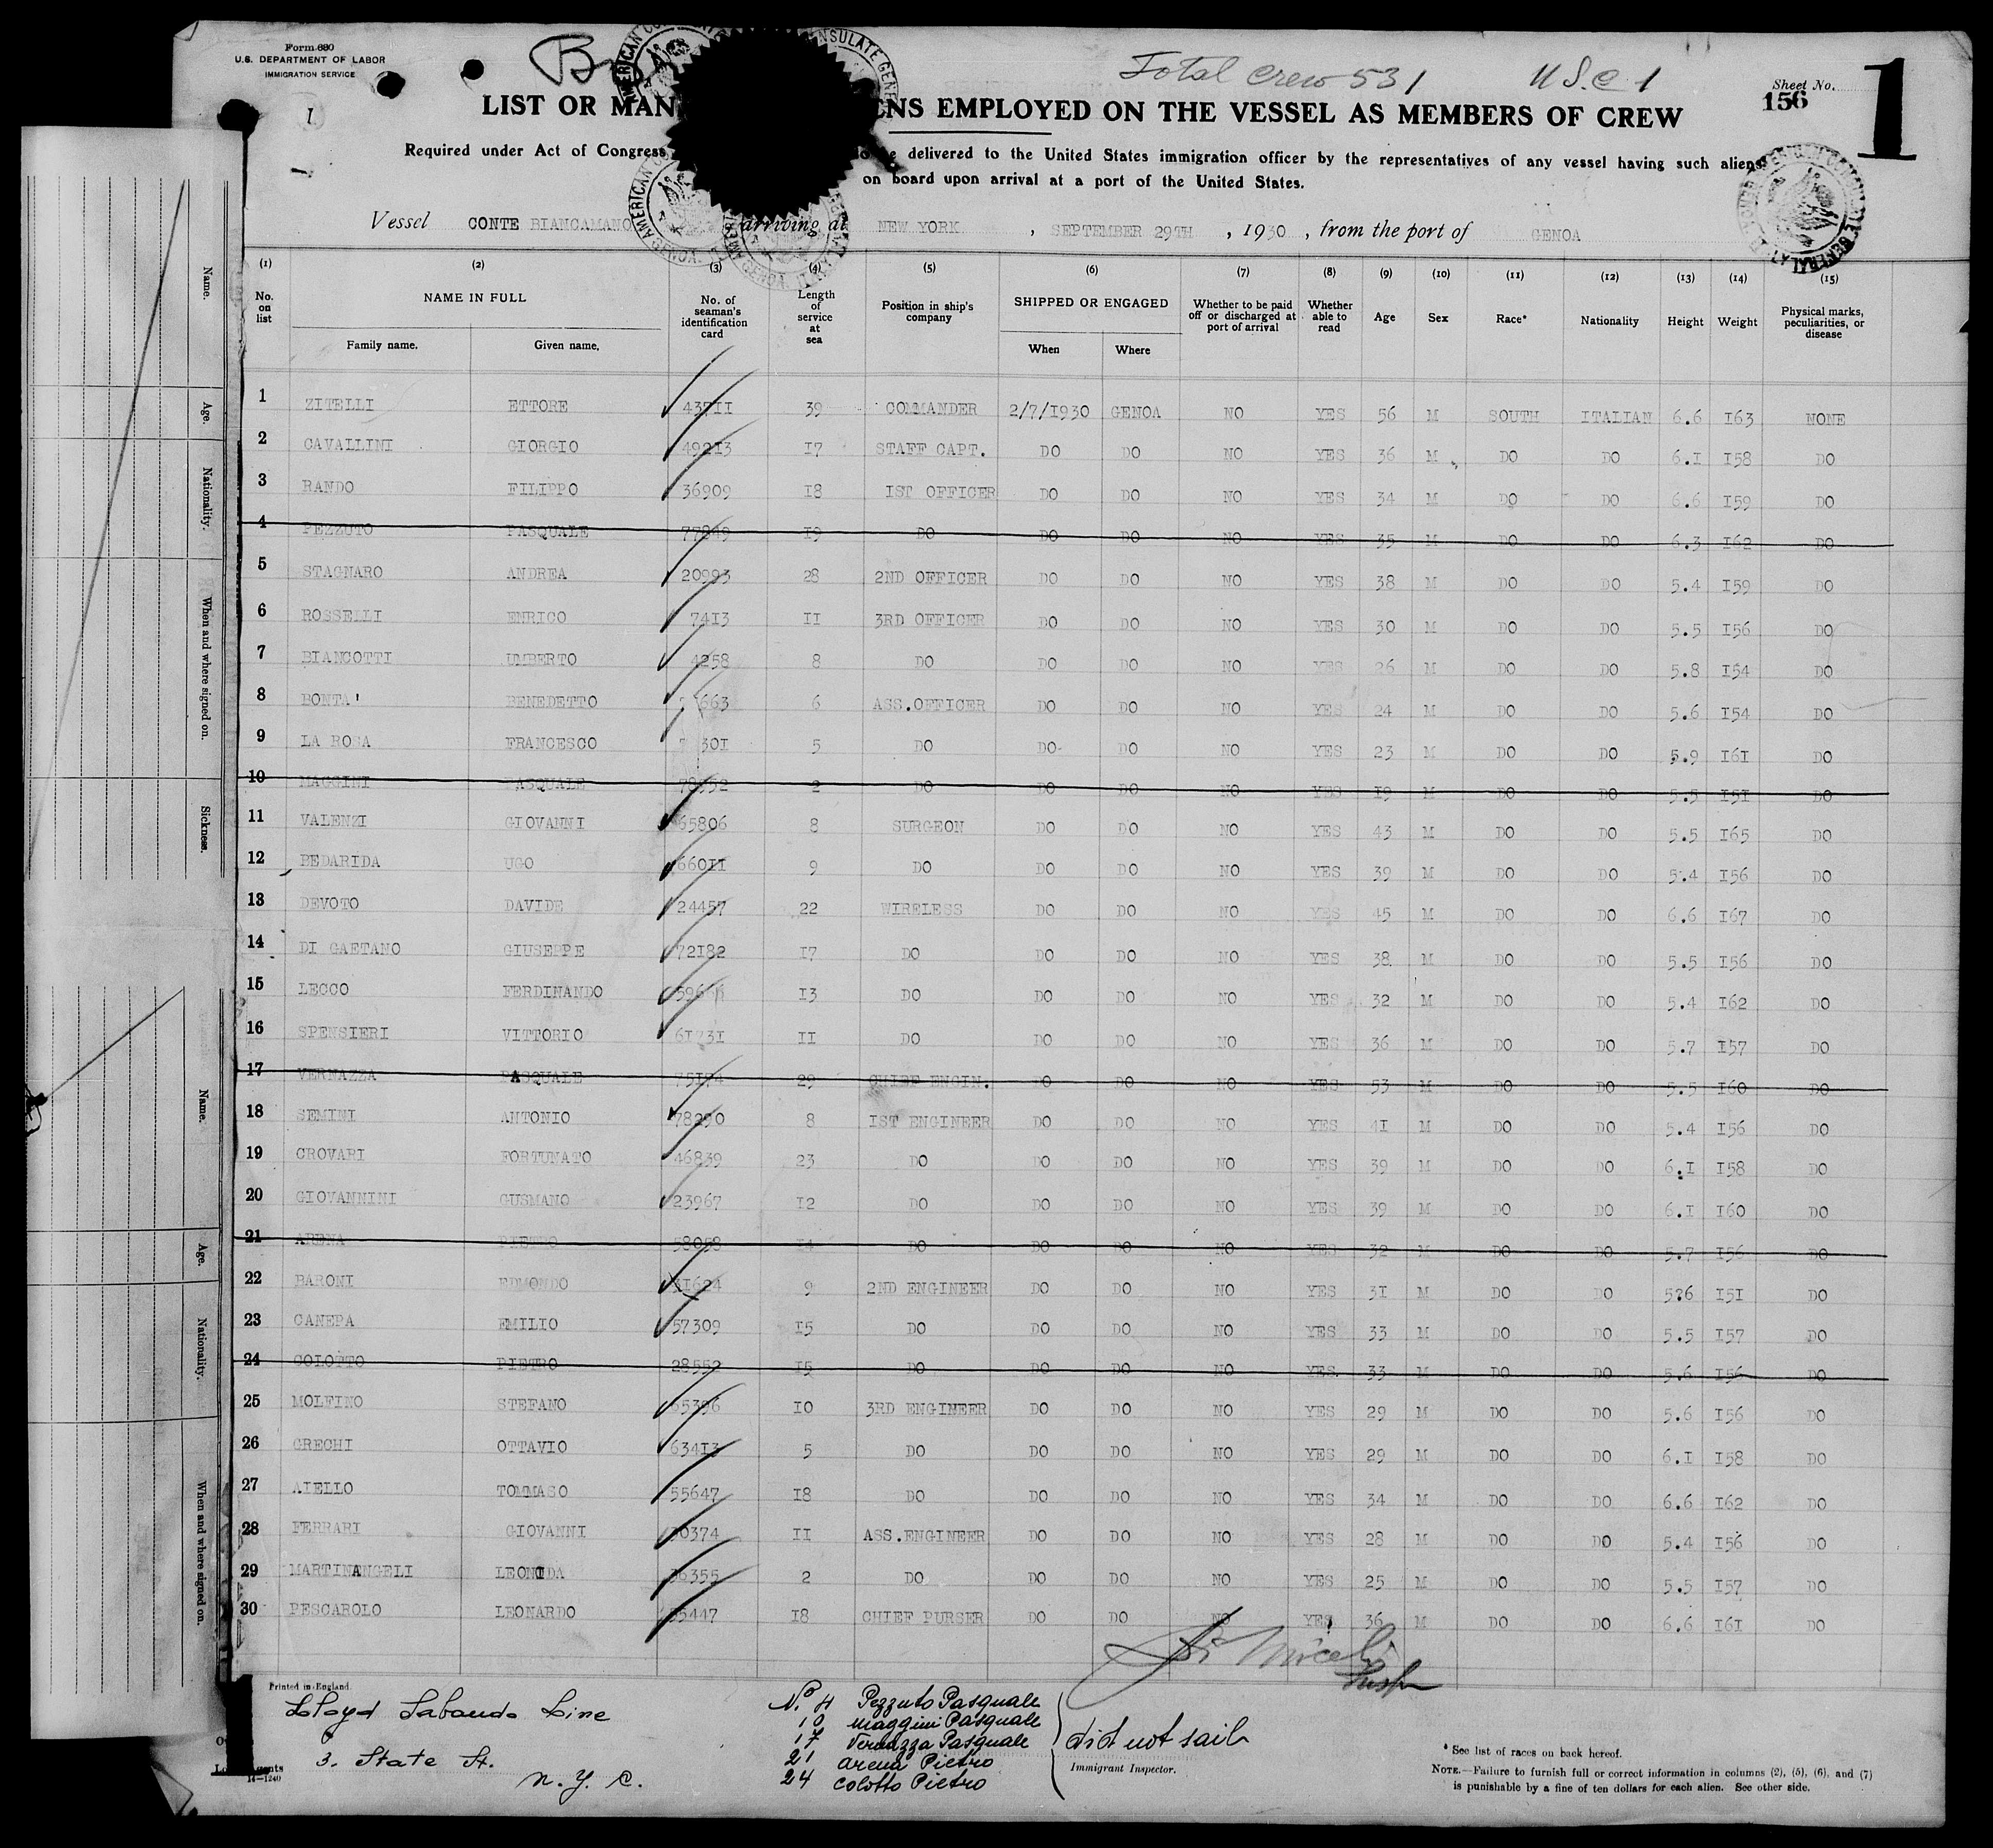 Form 680
U.S. DEPARTMENT OF LABOR
IMMIGRATION SERVICE
Total Crew 531 U.S.C 1
Sheet No.
156
1
LIST OR MAN ENS EMPLOYED ON THE VESSEL AS MEMBERS OF CREW
Required under Act of Congress be delivered to the United States immigration officer by the representatives of any vessel having such aliens
on board upon arrival at a port of the United States.
Vessel CONTE BIANCAMANO arriving at NEW YORK , SEPTEMBER 29TH , 1930 , from the port of GENOA
(1) (2) (3) (4) (5) (6) (7) (8) (9) (10) (11) (12) (13) (14) (15)
No. on list NAME IN FULL Family name. Given name. No. of seaman's identification card Length of service at sea Position in ship's company SHIPPED OR ENGAGED When Where Whether to be paid off or discharged at port of arrival Whether able to read Age Sex Race* Nationality Height Weight Physical marks, peculiarities, or disease
1 ZITELLI ETTORE 43711 39 COMMANDER 2/7/1930 GENOA NO YES 56 M SOUTH ITALIAN 6.6 163 NONE
2 CAVALLINI GIORGIO 49213 17 STAFF CAPT. DO DO NO YES 36 M DO DO 6.1 158 DO
3 RANDO FILIPPO 36909 18 IST OFFICER DO DO NO YES 34 M DO DO 6.6 159 DO
4 PEZZUTO PASQUALE 77849 19 DO DO DO NO YES 35 M DO DO 6.3 162 DO
5 STAGNARO ANDREA 20993 28 2ND OFFICER DO DO NO YES 38 M DO DO 5.4 159 DO
6 ROSSELLI ENRICO 7413 11 3RD OFFICER DO DO NO YES 30 M DO DO 5.5 156 DO
7 BIANCOTTI UMBERTO 4258 8 DO DO DO NO YES 26 M DO DO 5.8 154 DO
8 BONTA' BENEDETTO 663 6 ASS.OFFICER DO DO NO YES 24 M DO DO 5.6 154 DO
9 LA ROSA FRANCESCO 301 5 DO DO DO NO YES 23 M DO DO 5.9 161 DO
10 MAGGINI PASQUALE 2 DO DO DO NO YES 19 M DO DO 5.5 151 DO
11 VALENZI GIOVANNI 65806 8 SURGEON DO DO NO YES 43 M DO DO 5.5 165 DO
12 BEDARIDA UGO 66011 9 DO DO DO NO YES 39 M DO DO 5.4 156 DO
13 DEVOTO DAVIDE 24457 22 WIRELESS DO DO NO YES 45 M DO DO 6.6 167 DO
14 DI GAETANO GIUSEPPE 72182 17 DO DO DO NO YES 38 M DO DO 5.5 156 DO
15 LECCO FERDINANDO 13 DO DO DO NO YES 32 M DO DO 5.4 162 DO
16 SPENSIERI VITTORIO 11 DO DO DO NO YES 36 M DO DO 5.7 157 DO
17 VERNAZZA PASQUALE 29 CHIEF ENGIN. DO DO NO YES 53 M DO DO 5.5 160 DO
18 SEMINI ANTONIO 78290 8 IST ENGINEER DO DO NO YES 41 M DO DO 5.4 156 DO
19 CROVARI FORTUNATO 46839 23 DO DO DO NO YES 39 M DO DO 6.1 158 DO
20 GIOVANNINI GUSMANO 23967 12 DO DO DO NO YES 39 M DO DO 6.1 160 DO
21 ARENA PIETRO 58058 14 DO DO DO NO YES 32 M DO DO 5.7 156 DO
22 BARONI EDMONDO 31624 9 2ND ENGINEER DO DO NO YES 31 M DO DO 5?6 151 DO
23 CANEPA EMILIO 57309 15 DO DO DO NO YES 33 M DO DO 5.5 157 DO
24 COLOTTO PIETRO 28552 15 DO DO DO NO YES 33 M DO DO 5.6 156 DO
25 MOLFINO STEFANO 10 3RD ENGINEER DO DO NO YES 29 M DO DO 5.6 156 DO
26 GRECHI OTTAVIO 63413 5 DO DO DO NO YES 29 M DO DO 6.1 158 DO
27 AIELLO TOMMASO 55647 18 DO DO DO NO YES 34 M DO DO 6.6 162 DO
28 FERRARI GIOVANNI 11 ASS.ENGINEER DO DO NO YES 28 M DO DO 5.4 156 DO
29 MARTINANGELI LEONIDA 2 DO DO DO NO YES 25 M DO DO 5.5 157 DO
30 PESCAROLO LEONARDO 18 CHIEF PURSER DO DO NO YES 36 M DO DO 6.6 161 DO
Printed in England.
Lloyd Sabaudo Line
3. State St.
N. Y. C.
14—1240
No. 4 Pezzuto Pasquale
10 Maggini Pasquale
17 Vernazza Pasquale
21 Arena Pietro
24 Colotto Pietro
did not sail
Immigrant Inspector.
* See list of races on back hereof.
NOTE.—Failure to furnish full or correct information in columns (2), (5), (6), and (7)
is punishable by a fine of ten dollars for each alien. See other side.
Name.
Age.
Nationality.
When and where signed on.
Sickness.
Name.
Age.
Nationality.
When and where signed on.